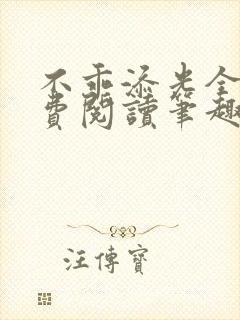 不乖添光全
費閱讀筆趣
汪傳寶